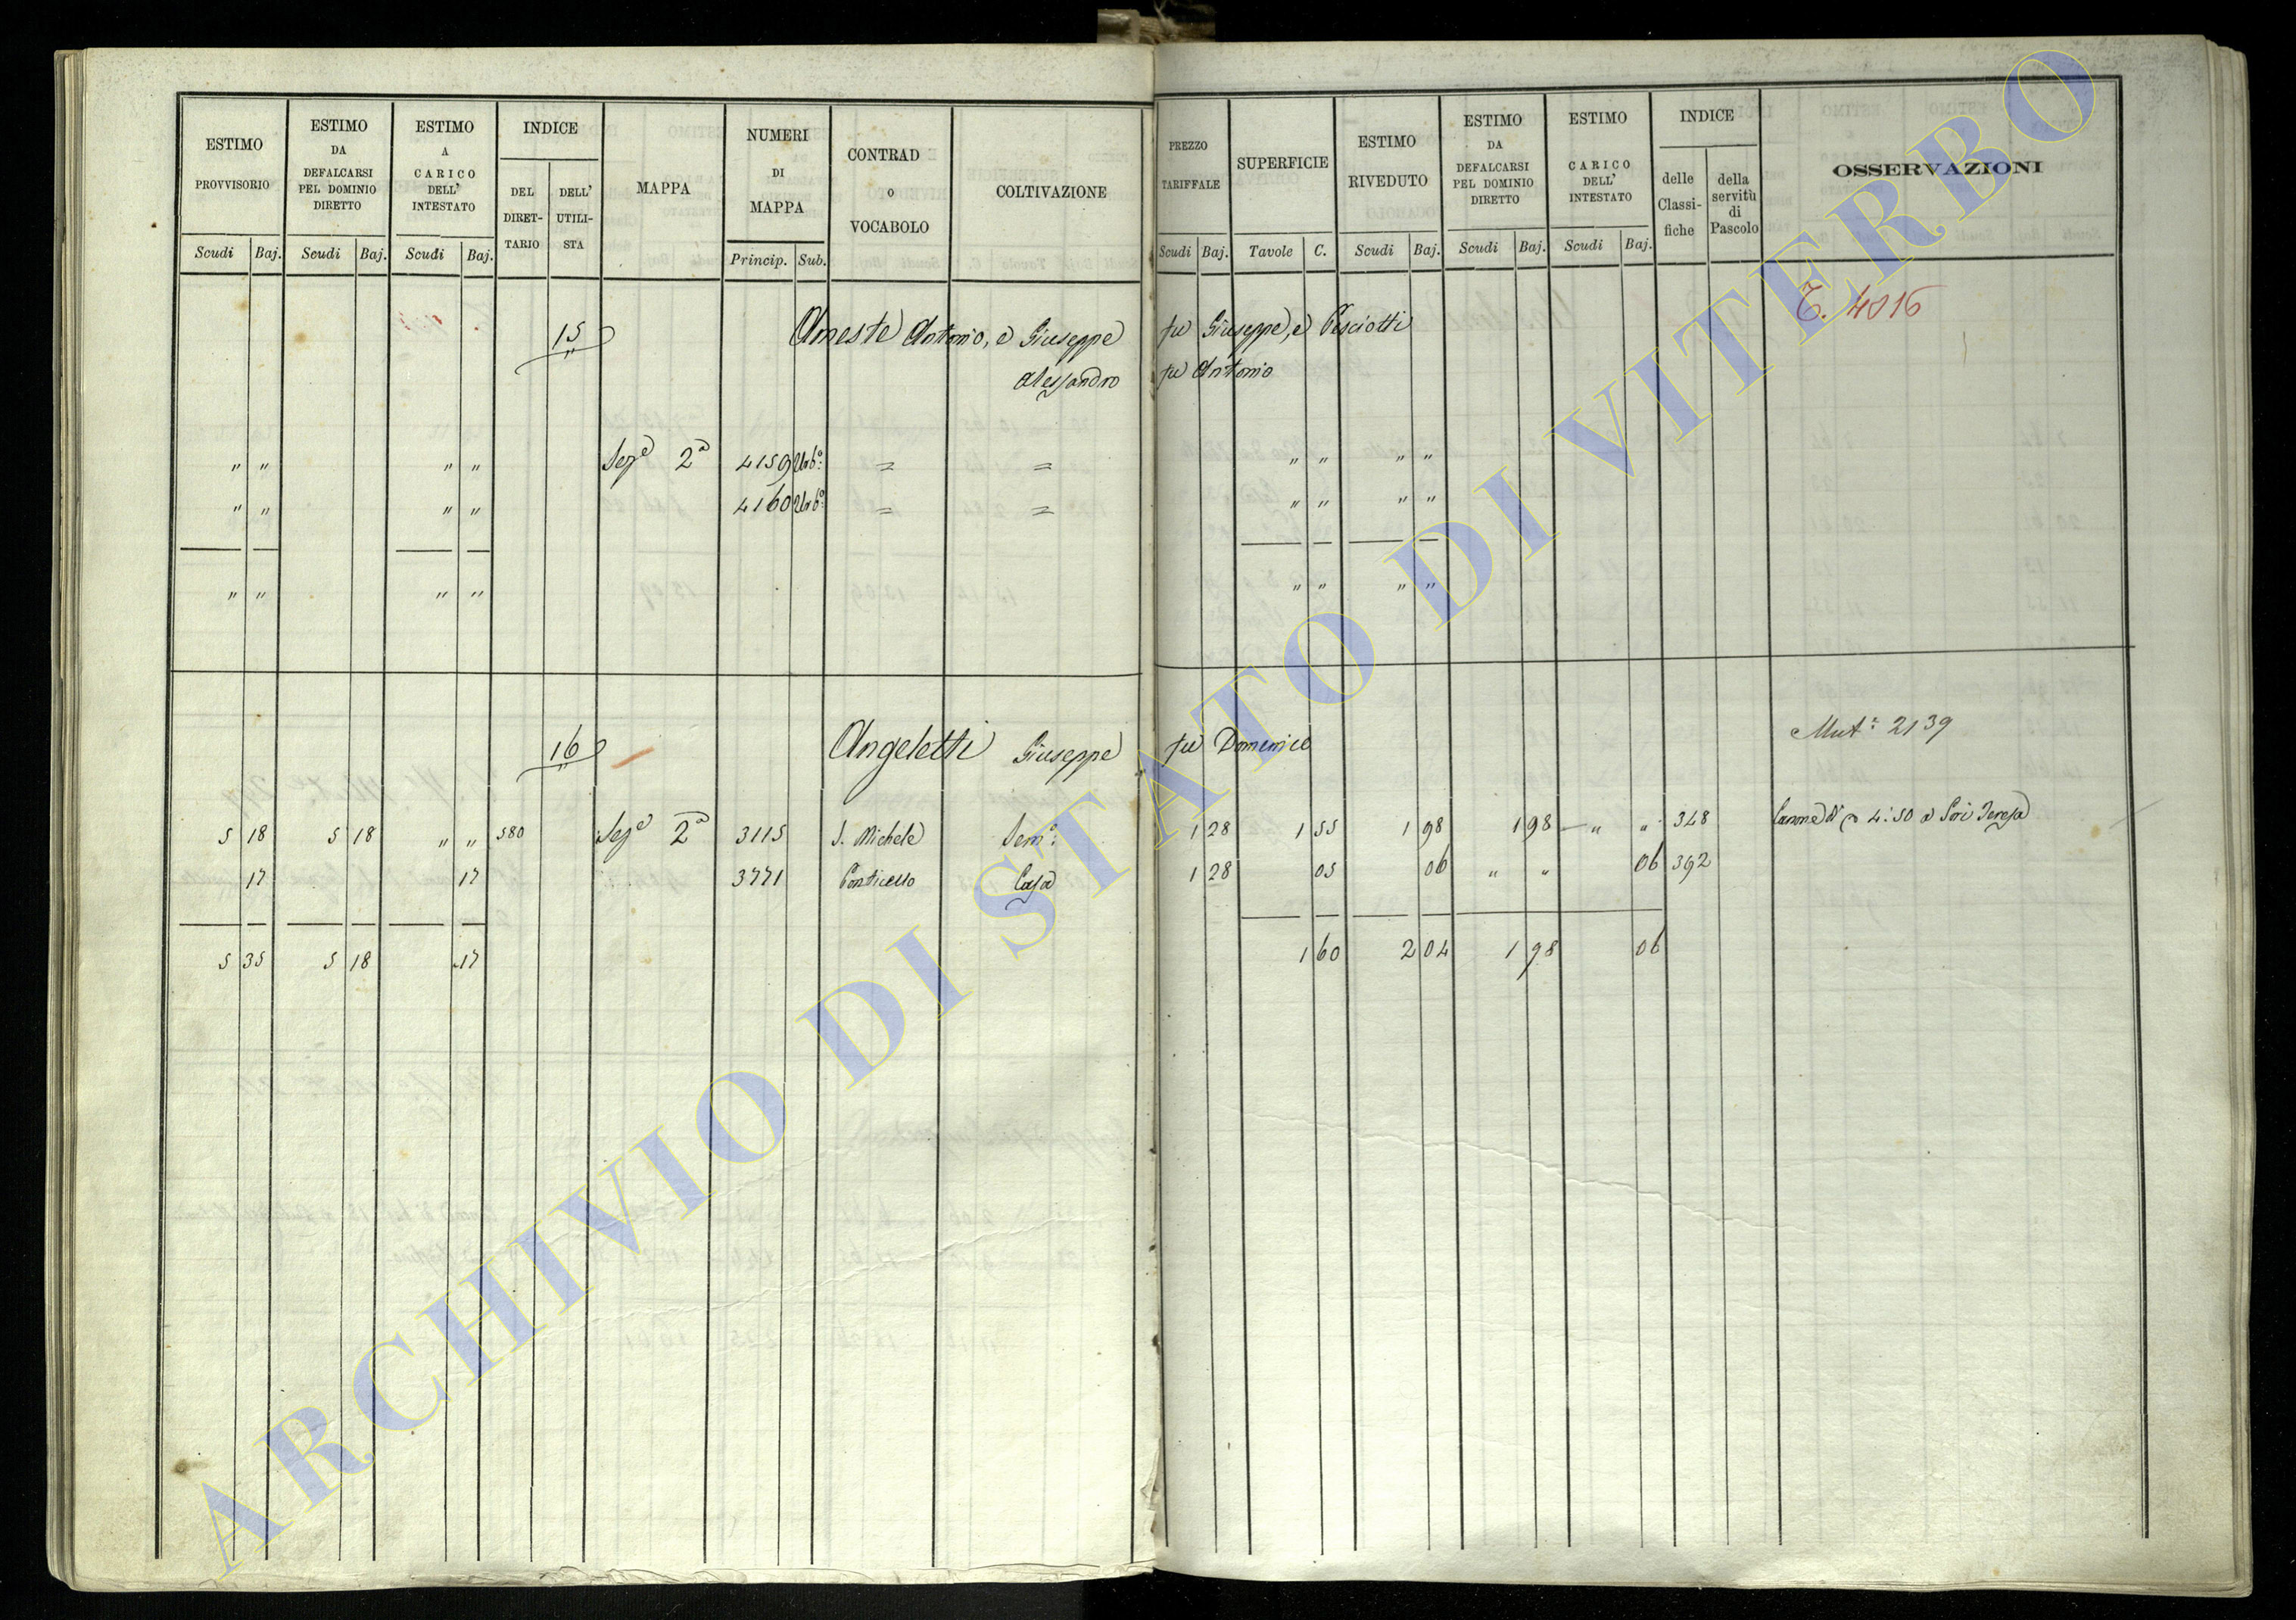 ESTIMO PROVVISORIO
ESTIMO DA DEFALCARSI PEL DOMINIO DIRETTO
ESTIMO A CARICO DELL' INTESTATO
INDICE
DEL DIRET-TARIO
DELL' UTILI-STA
MAPPA
NUMERI DI MAPPA
CONTRAD o VOCABOLO
COLTIVAZIONE
PREZZO TARIFFALE
SUPERFICIE
ESTIMO RIVEDUTO
ESTIMO DA DEFALCARSI PEL DOMINIO DIRETTO
ESTIMO A CARICO DELL' INTESTATO
INDICE
delle Classi-fiche
della servitù di Pascolo
OSSERVAZIONI
Scudi Baj. Scudi Baj. Scudi Baj. Princip. Sub. Scudi Baj. Tavole C. Scudi Baj. Scudi Baj. Scudi Baj.
T. 4016
15 Ameste Antonio, e Giuseppe fu Giuseppe, e Pesciotti
Alessandro fu Antonio
" " " " Sez.e 2a 4159 Urb.o = = " " " "
" " " " 4160 Urb.o = = " " " "
" " " " " " " "
Mut.e 2139
16 Angeletti Giuseppe fu Domenico
5 18 5 18 " " 580 Sez.e 2a 3115 S. Michele Sem.o 1 28 1 55 1 98 1 98 — " " 348 Canone di 4:50 a Teresa
17 17 3771 Ponticello Casa 1 28 05 06 " " 06 392
5 35 5 18 17 1 60 2 04 1 98 06
ARCHIVIO DI STATO DI VITERBO